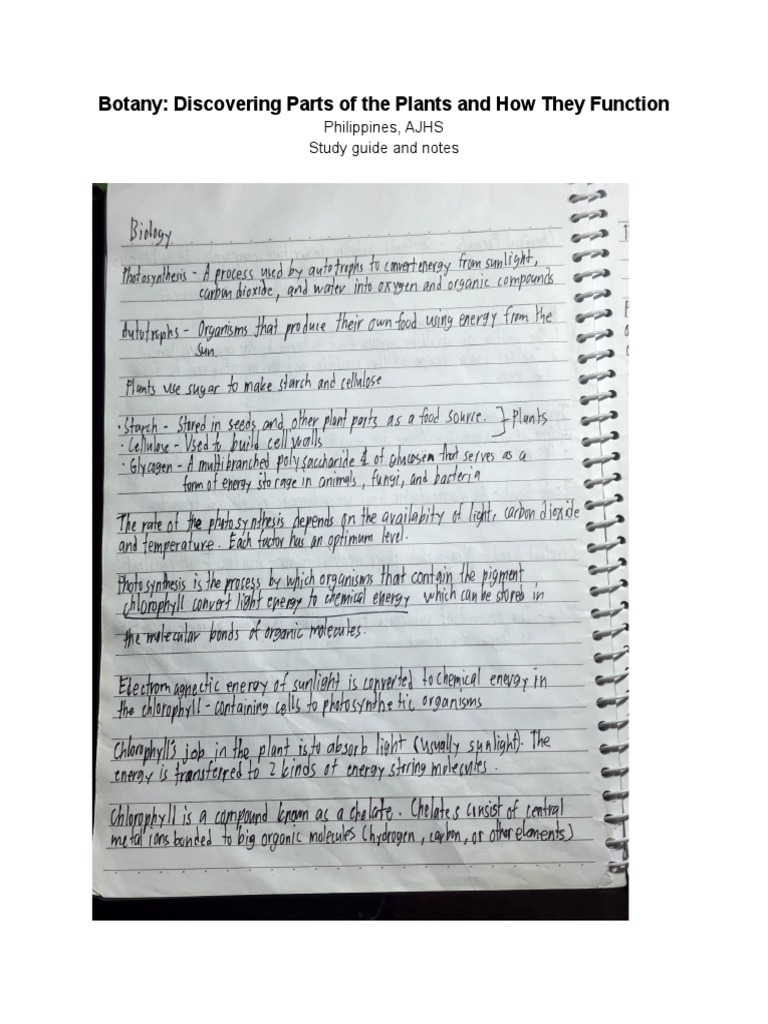 Botany: Discovering Parts of the Plants and How They Function
Philippines, AJHS
Study guide and notes
Biology
Photosynthesis - A process used by autotrophs to convert energy from sunlight,
carbon dioxide, and water into oxygen and organic compounds
Autotrophs - Organisms that produce their own food using energy from the
sun.
Plants use sugar to make starch and cellulose
• Starch - Stored in seeds and other plant parts as a food source. } Plants
• Cellulose - Used to build cell walls
• Glycogen - A multibranched polysaccharide of glucosen that serves as a
form of energy storage in animals, fungi, and bacteria
The rate of the photosynthesis depends on the availabity of light, carbon dioxide
and temperature. Each factor has an optimum level.
Photosynthesis is the process by which organisms that contain the pigment
chlorophyll convert light energy to chemical energy which can be stored in
the molecular bonds of organic molecules.
Electromagnectic energy of sunlight is converted to chemical energy in
the chlorophyll-containing cells to photosynthetic organisms
Chlorophyll's job in the plant is to absorb light (usually sunlight). The
energy is transferred to 2 kinds of energy storing molecules.
Chlorophyll is a compound known as a chelate. Chelates consist of central
metal ions bonded to big organic molecules (hydrogen, carbon, or other elements)